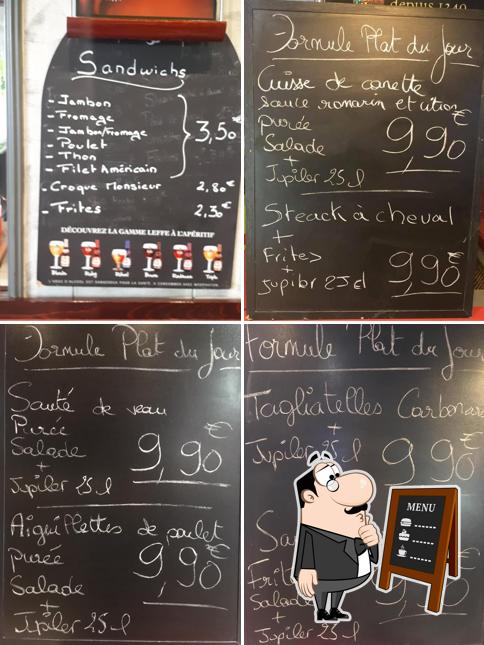 Sandwichs
- Jambon
- Fromage
- Jambon/fromage
- Poulet
- Thon
- Filet Américain
3,50€
- Croque Monsieur 2,80€
- Frites 2,30€
DÉCOUVREZ LA GAMME LEFFE À L'APÉRITIF
L'ABUS D'ALCOOL EST DANGEREUX POUR LA SANTÉ. À CONSOMMER AVEC MODÉRATION.
depuis 1240
Formule Plat du Jour
Cuisse de canette
sauce romarin et citron
purée
Salade
+
Jupiler 25 l
9,90€
Steack à cheval
+
Frites
+
Jupiler 25 cl
9,90€
Formule Plat du Jour
Sauté de veau
Purée
Salade
+
Jupiler 25 l
9,90€
Aiguillettes de poulet
purée
Salade
+
Jupiler 25 l
9,90€
Formule Plat du Jour
Tagliatelles Carbonara
+
Jupiler 25 l
9,90€
Salade
+
Jupiler 25 l
MENU